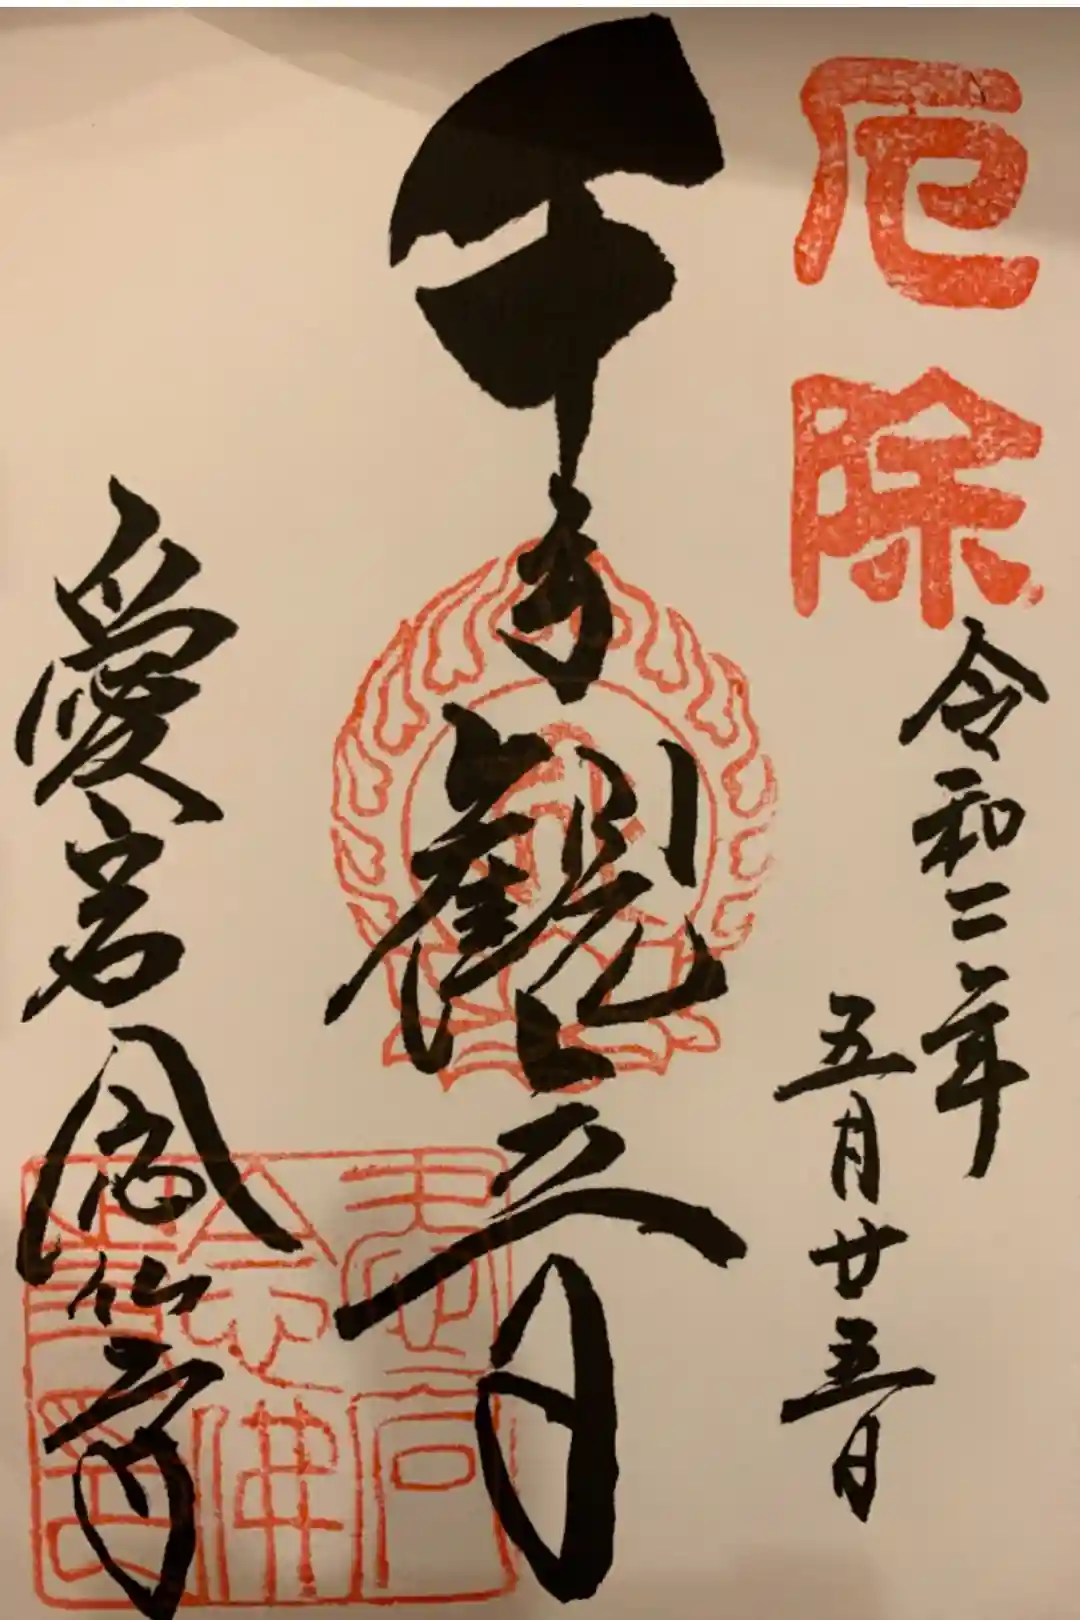 厄除
令和二年
五月廿五日
千手観音
愛宕念仏寺